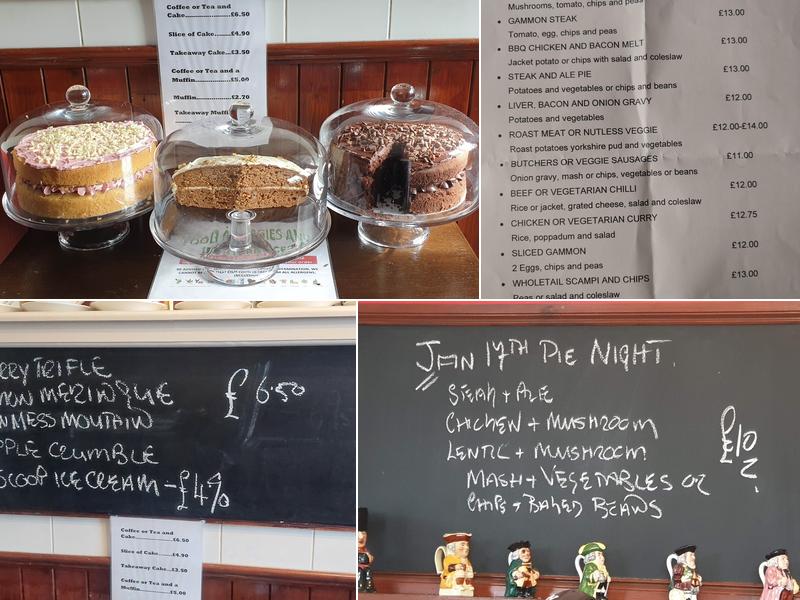 Coffee or Tea and
Cake..............£6.50
Slice of Cake......£4.90
Takeaway Cake...£3.50
Coffee or Tea and a
Muffin............£5.00
Muffin............£2.70
Takeaway
Mushrooms, tomato, chips and peas
• GAMMON STEAK £13.00
Tomato, egg, chips and peas
• BBQ CHICKEN AND BACON MELT £13.00
Jacket potato or chips with salad and coleslaw
• STEAK AND ALE PIE £13.00
Potatoes and vegetables or chips and beans
• LIVER, BACON AND ONION GRAVY £12.00
Potatoes and vegetables
• ROAST MEAT OR NUTLESS VEGGIE £12.00-£14.00
Roast potatoes yorkshire pud and vegetables
• BUTCHERS OR VEGGIE SAUSAGES £11.00
Onion gravy, mash or chips, vegetables or beans
• BEEF OR VEGETARIAN CHILLI £12.00
Rice or jacket, grated cheese, salad and coleslaw
• CHICKEN OR VEGETARIAN CURRY £12.75
Rice, poppadum and salad
• SLICED GAMMON £12.00
2 Eggs, chips and peas
• WHOLETAIL SCAMPI AND CHIPS £13.00
Peas or salad and coleslaw
RRY TRIFLE
MON MERINGUE £6.50
N MESS MOUTAIN
PPLE CRUMBLE
SCOOP ICE CREAM - £4
Coffee or Tea and
Cake..............£6.50
Slice of Cake......£4.90
Takeaway Cake...£3.50
Coffee or Tea and a
Muffin............£5.00
JAN 17TH PIE NIGHT.
STEAK + ALE
CHICKEN + MUSHROOM
LENTIL + MUSHROOM £10
MASH + VEGETABLES OR
CHIPS + BAKED BEANS